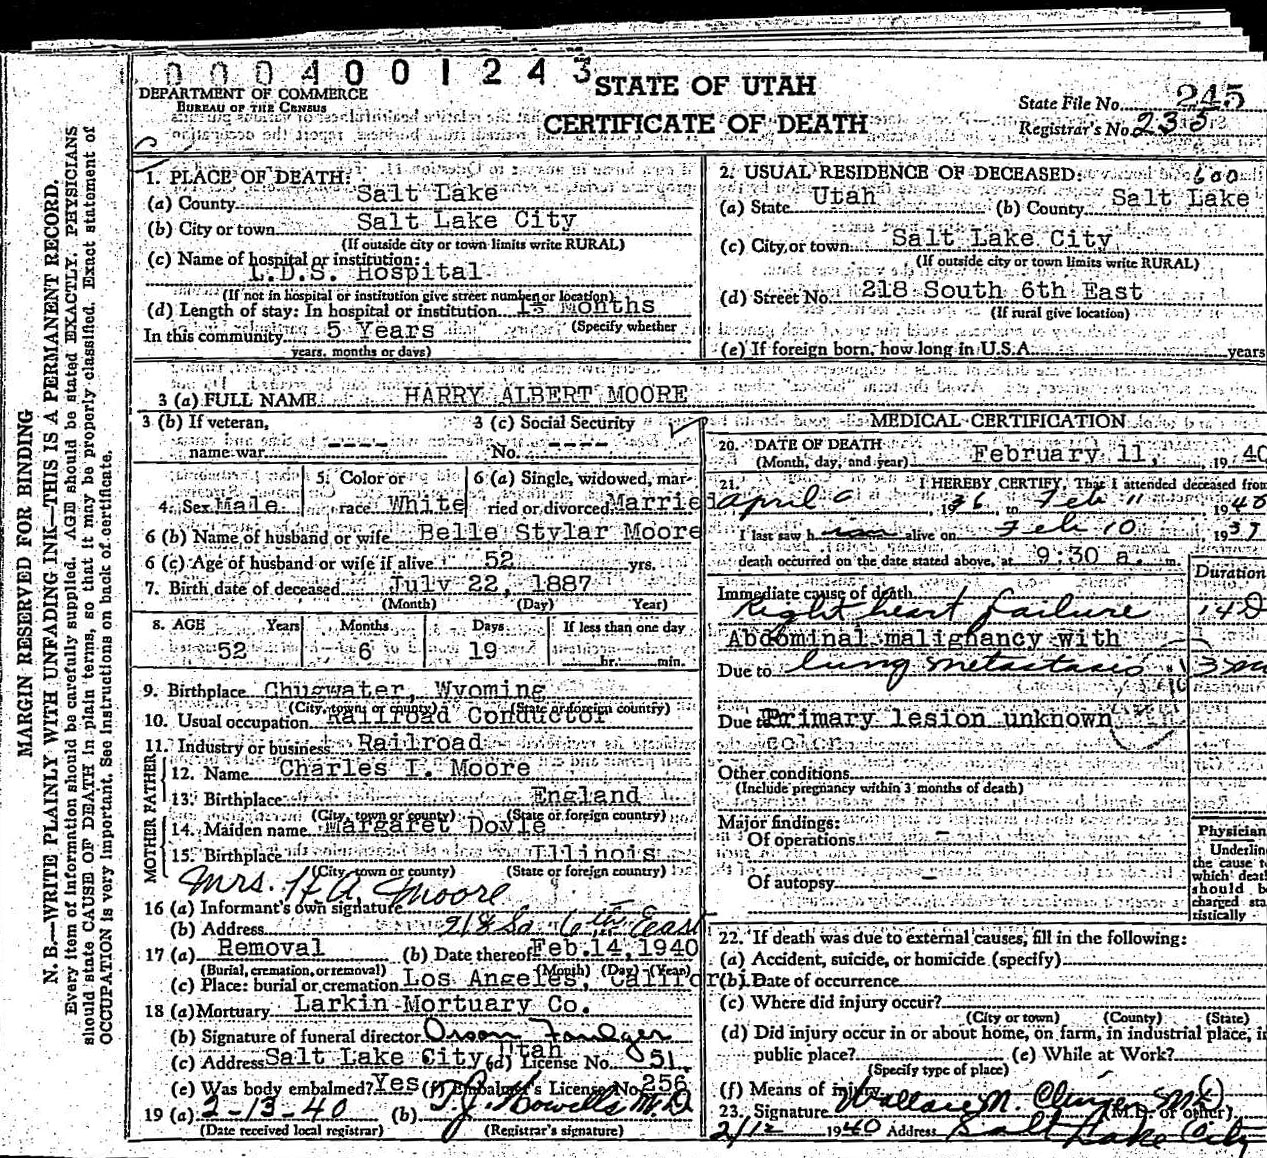 0004001243
DEPARTMENT OF COMMERCE
BUREAU OF THE CENSUS
STATE OF UTAH
CERTIFICATE OF DEATH
State File No. 245
Registrar's No. 235
MARGIN RESERVED FOR BINDING
N. B.—WRITE PLAINLY WITH UNFADING INK—THIS IS A PERMANENT RECORD.
Every item of information should be carefully supplied. AGE should be stated EXACTLY. PHYSICIANS
should state CAUSE OF DEATH in plain terms, so that it may be properly classified. Exact statement of
OCCUPATION is very important. See instructions on back of certificate.
1. PLACE OF DEATH:
(a) County Salt Lake
(b) City or town Salt Lake City
(If outside city or town limits write RURAL)
(c) Name of hospital or institution:
L.D.S. Hospital
(If not in hospital or institution give street number or location)
(d) Length of stay: In hospital or institution 1½ Months
(Specify whether
In this community 5 Years
years, months or days)
2. USUAL RESIDENCE OF DECEASED: 600
(a) State Utah (b) County Salt Lake
(c) City or town Salt Lake City
(If outside city or town limits write RURAL)
(d) Street No. 218 South 6th East
(If rural give location)
(e) If foreign born, how long in U.S.A. years
3 (a) FULL NAME HARRY ALBERT MOORE
3 (b) If veteran,
name war ----
3 (c) Social Security
No. ----
4. Sex Male
5. Color or
race White
6 (a) Single, widowed, mar-
ried or divorced Married
6 (b) Name of husband or wife Belle Stylar Moore
6 (c) Age of husband or wife if alive 52 yrs.
7. Birth date of deceased July 22, 1887
(Month) (Day) Year)
8. AGE Years Months Days If less than one day
52 6 19 hr. min.
9. Birthplace Chugwater, Wyoming
(City, town or county) (State or foreign country)
10. Usual occupation Railroad Conductor
11. Industry or business Railroad
FATHER
12. Name Charles I. Moore
13. Birthplace England
(City, town or county) (State or foreign country)
MOTHER
14. Maiden name Margaret Doyle
15. Birthplace Illinois
(City, town or county) (State or foreign country)
Mrs. H A. Moore
16 (a) Informant's own signature
(b) Address 218 So 6th East
17 (a) Removal (b) Date thereof Feb.14, 1940
(Burial, cremation, or removal) (Month) (Day) (Year)
(c) Place: burial or cremation Los Angeles, Califor
18 (a) Mortuary Larkin Mortuary Co.
(b) Signature of funeral director Orson Foulger
(c) Address Salt Lake City, Utah (d) License No. 51
(e) Was body embalmed? Yes (f) Embalmer's License No. 256
19 (a) 2-13-40 (b) T.J. Howells M.D
(Date received local registrar) (Registrar's signature)
MEDICAL CERTIFICATION
20. DATE OF DEATH
(Month, day, and year) February 11, 19 40
21. I HEREBY CERTIFY, That I attended deceased from
April 1936, to Feb 11 1940
I last saw h im alive on Feb 10 1937
death occurred on the date stated above, at 9:30 a. m.
Duration
Immediate cause of death
Right heart failure 14 D
Abdominal malignancy with
Due to lung metastasis 3
Due to Primary lesion unknown
colon
Other conditions
(Include pregnancy within 3 months of death)
Major findings:
Of operations –
Of autopsy –
Physician
Underline
the cause to
which death
should be
charged sta-
tistically
22. If death was due to external causes, fill in the following:
(a) Accident, suicide, or homicide (specify)
(b) Date of occurrence
(c) Where did injury occur?
(City or town) (County) (State)
(d) Did injury occur in or about home, on farm, in industrial place, in
public place? (e) While at Work?
(Specify type of place)
(f) Means of injury
23. Signature Wallace M. (M.D. or other)
2/12 1940 Address Salt Lake City